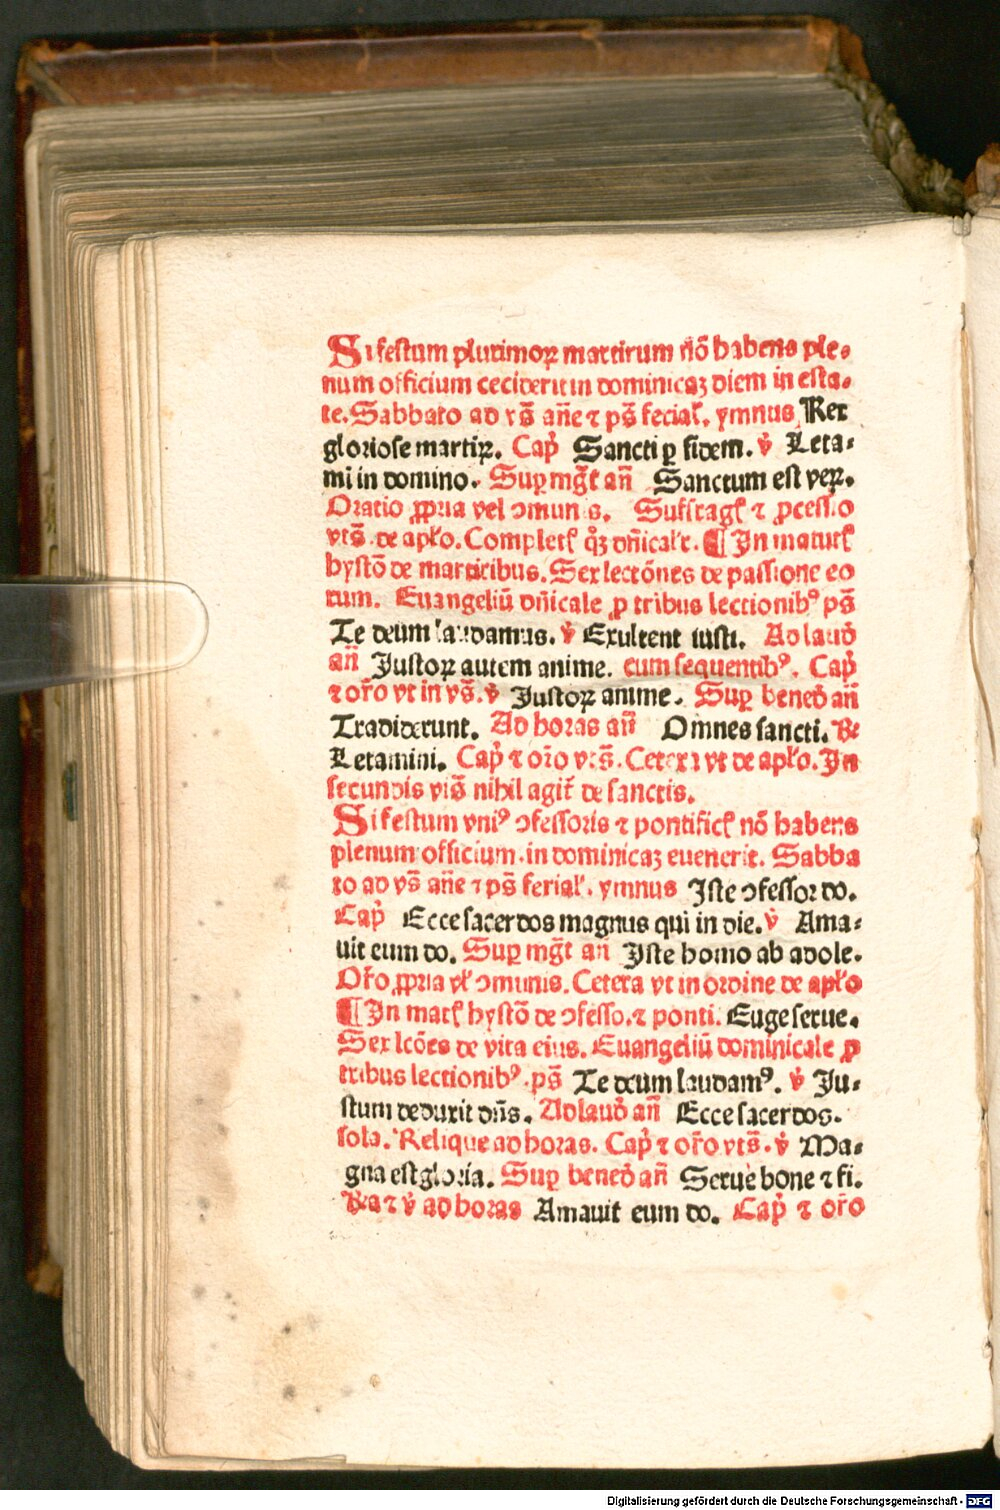 Si festum plurimoꝝ martirum nō habens ple⸗
num officium ceciderit in dominicaꝫ diem in esta⸗
te. Sabbato ad vs̄ añe ⁊ ps̄ ferial̓. ymnus Rex
gloriose martiꝝ. Cap̓ Sancti ꝑ fidem. v̓ Leta⸗
mi in domino. Suꝑ mg̅t an̄ Sanctum est veꝝ.
Oratio ꝓpria vel ↄmunis. Suffragͥ ⁊ ꝓcessio
vts̄ de apl̓o. Complet q̓ꝫ dn̄icale. ¶ In matut
hystō de martiribus. Sex lectōnes de passione eo
rum. Euangeliū dn̄icale ꝓ tribus lectionibꝰ ps̄
Te deum laudamus. v̓ Exultent iusti. Ad laud̓
an̄ Justoꝝ autem anime. cum sequentibꝰ. Cap̓
⁊ or̄o vt in vs̄. v̓ Justoꝝ anime. Suꝑ bened̓ an̄
Tradiderunt. Ad horas an̄ Omnes sancti. R̓
Letamini. Cap̓ ⁊ or̄o vts̄. Cetera vt de apl̓o. In
secundis vis̄ nihil agit̄ de sanctis.
Si festum vniꝰ ↄfessoris ⁊ pontific nō habens
plenum officium in dominicaꝫ euenerit. Sabba
to ad vs̄ añe ⁊ ps̄ ferial̓. ymnus Iste ↄfessor do.
Cap̓ Ecce sacerdos magnus qui in die. v̓ Ama⸗
uit eum do. Suꝑ mg̅t an̄ Iste homo ab adole.
Or̄o ꝓpria vl̓ ↄmunis. Cetera vt in ordine de apl̓o
¶ In mat hystō de ↄfesso. ⁊ ponti. Euge serue.
Sex lcōes de vita eius. Euangeliū dominicale ꝓ
tribus lectionibꝰ. ps̄ Te deum laudamꝰ. v̓ Ju⸗
stum deduxit dn̄s. Ad laud̓ an̄ Ecce sacerdos.
sola. Relique ad horas. Cap̓ ⁊ or̄o vts̄. v̓ Ma⸗
gna est gloria. Suꝑ bened̓ an̄ Serue bone ⁊ fi.
R̓a ⁊ v̓ ad horas Amauit eum do. Cap̓ ⁊ or̄o
Digitalisierung gefördert durch die Deutsche Forschungsgemeinschaft - DFG